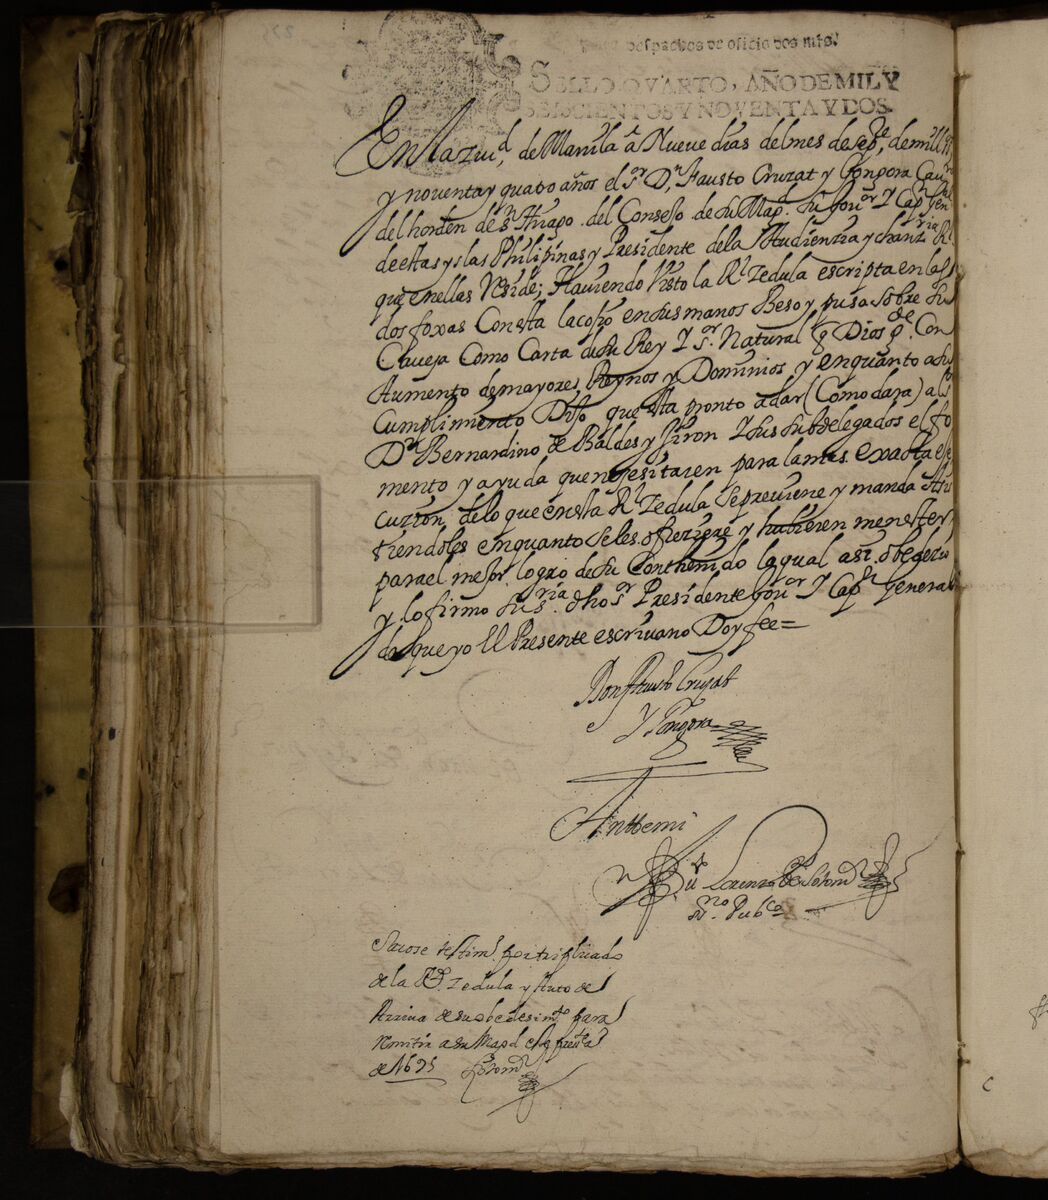 Para despachos de oficio dos mrs.
SELLO QVARTO, AÑO DE MIL Y
SEISCIENTOS Y NOVENTA Y DOS.
En la Ziud, de Manila a Nueve dias del mes de sepe, de mill
y noventa y quatro años el Sr Dn, Fausto Cruzat y Gongora Cavro
del horden de sn Thiago. del Consejo de su Magd. su Gour Y Capn Gen
de estas yslas Philipinas y Presidente de la Audienzia y chanzria Rl
que en ellas Reside; Haviendo Visto la Rl zedula escripta en las
dos foxas Con esta la cojio en sus manos Beso y puso sobre su
Caveza Como Carta de su Rey Y sr. Natural q Dios ge. Con
Aumento de mayores Reynos y Dominios y en quanto a su
Cumplimiento Dijo que esta pronto a dar (Como dara) al sr
Dn Bernardino de Baldes y Jiron Y sus subdelegados el fo
mento y ayuda que nesesitaren para la mas exacta eje
cuzion de lo que en esta Rl zedula se previene y manda Asis
tiendoles en quanto se les ofreziere y hubieren menester,
para el mejor logro de su Conthenido la qual asi obedezio
y lo firmo su sria. dho sr Presidente Gour Y Capn General
de que yo El Presente escrivano Doy fee=
Don Fausto Cruzat
Y Gongora
Ante mi
Lorenzo
sno. Pubco
Sacose testimo. por triplicado
de la Rl. zedula y Auto de
Arriva de su obedesimto para
Remitir a su Magd en
de 1695